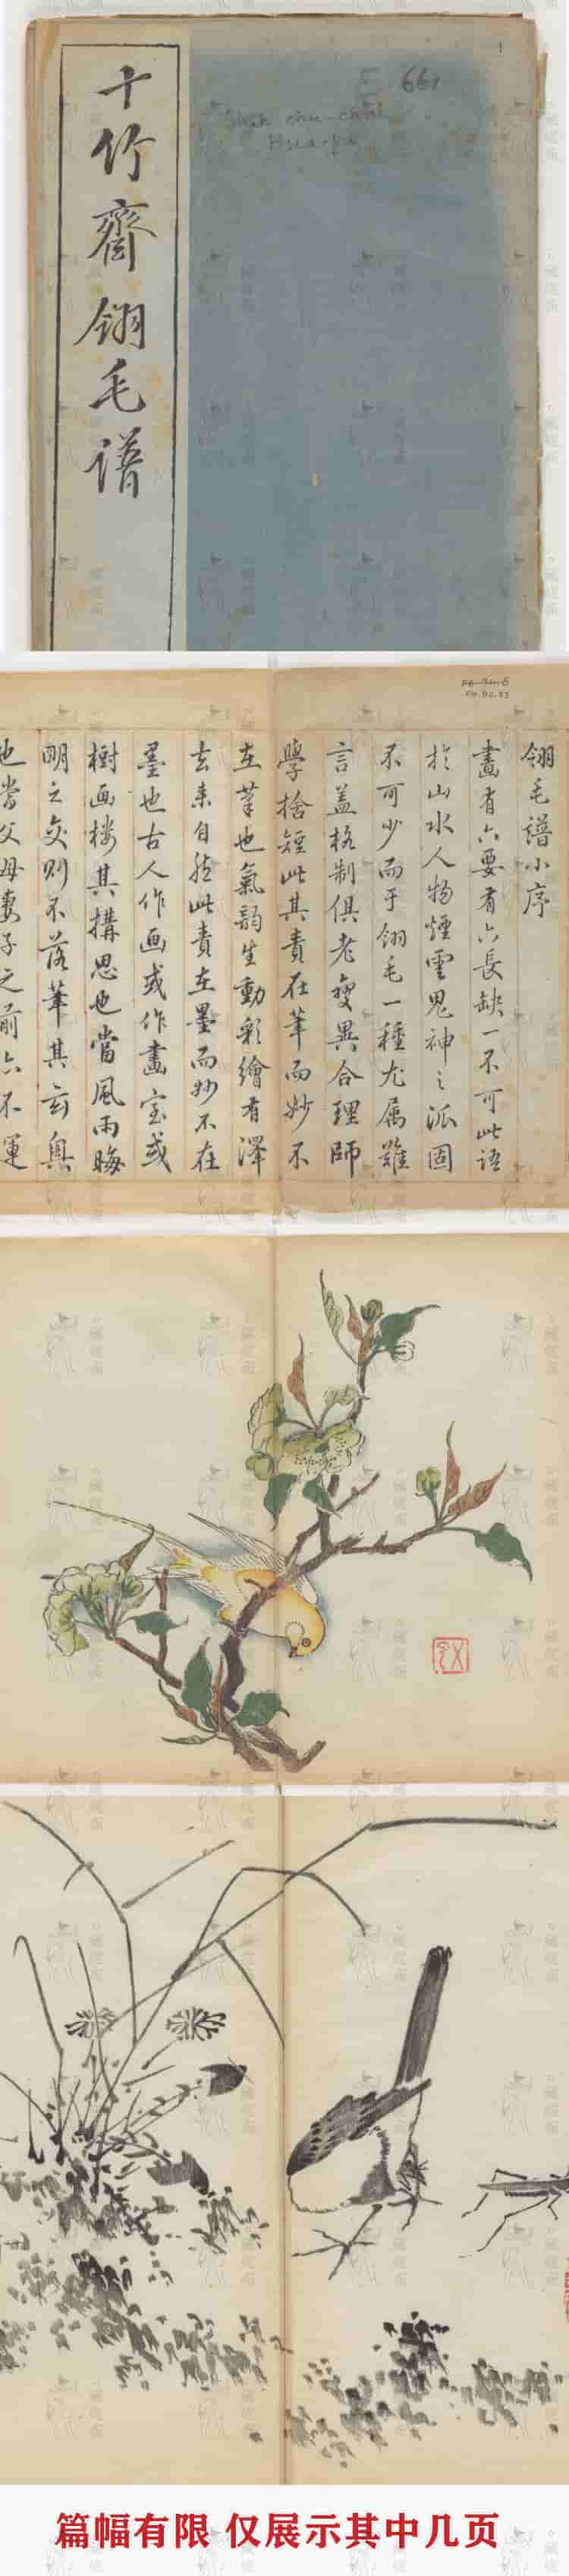 十竹齋翎毛譜
E 661
Shih chu-chai
Hua-pu
翎毛譜小序
畫有六要有六長缺一不可此語
於山水人物煙雲鬼神之派固
不可少而于翎毛一種尤属難
言蓋格制俱老變異合理師
學捨短此其責在筆而妙不
在筆也氣韵生動彩繪有澤
去来自然此責在墨而妙不在
墨也古人作画或作畫室或
樹画楼其搆思也當風雨晦
明之交则不落筆其玄奥
也當父母妻子之前亦不運
篇幅有限 仅展示其中几页